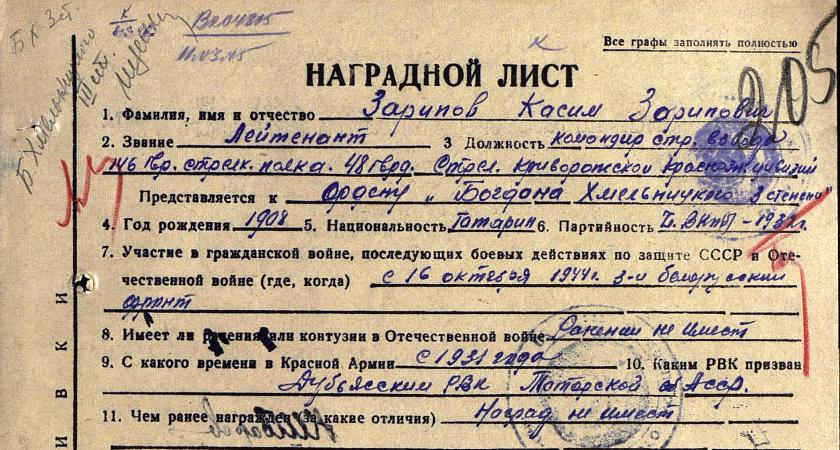 Б Х 3 ст.
Б Хмельницкого
III ст.
11.03.45
Все графы заполнять полностью
205
НАГРАДНОЙ ЛИСТ
1. Фамилия, имя и отчество Зарипов Касим Зарипович
2. Звание Лейтенант 3 Должность командир стр. взвода
146 гв. стрелк. полка. 48 гврд. Стрел. Криворожской Краснозн. дивизии
Представляется к Ордену „Богдана Хмельницкого 3 степени
4. Год рождения 1908 5. Национальность Татарин 6. Партийность ВКП(б) - 1932г.
7. Участие в гражданской войне, последующих боевых действиях по защите СССР и Оте-
чественной войне (где, когда) с 16 октября 1944г. 3-й белорусский
фронт
8. Имеет ли ранения или контузии в Отечественной войне Ранений не имеет
9. С какого времени в Красной Армии с 1931 года 10. Каким РВК призван
Дубьясским РВК Татарской АССР.
11. Чем ранее награжден (за какие отличия) Наград не имеет
ИВКИ